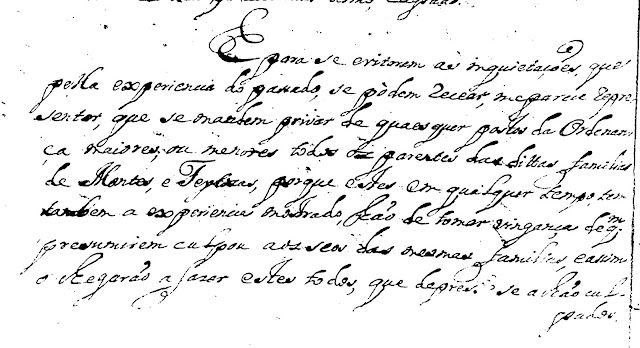 E para se evitarem as inquietações, que
pella experiencia do passado, se podem recear, me pareçe repre
sentar, que se mandem privar de quaesquer postos da Ordenan
ça maiores, ou menores todos os parentes das dittas familias
de Montes, e Feytozas, porque estes em qualquer tempo tem
tambem a experiencia mostrado, hão de tomar vingança de qm
presumirem culpou aos seos das mesmas familias, e assim
o chegarão a fazer estes todos, que depres. se achão cul
pados.